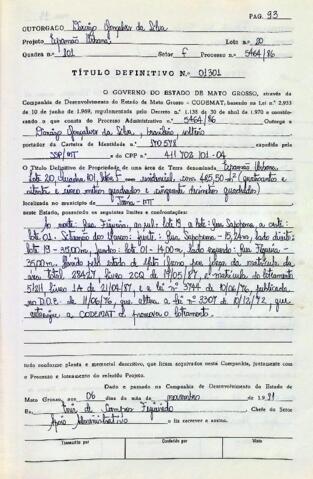 PAG. 93
OUTORGADO Dionízio Gonçalves da Silva
Projeto Expansão Urbana Lote n.o 20
Quadra n.o 101 Setor F Processo n.o 5464/86
TÍTULO DEFINITIVO N.o 01301
O GOVERNO DO ESTADO DE MATO GROSSO, através da
Companhia de Desenvolvimento do Estado de Mato Grosso - CODEMAT, baseado na Lei n.o 2.933
de 10 de junho de 1969, regulamentada pelo Decreto n.o 1.138 de 30 de abril de 1970 e conside-
rando o que consta do Processo Administrativo n.o 5464/86 Outorga a
Dionízio Gonçalves da Silva, brasileiro, solteiro
portador da Carteira de Identidade n.o 170.578
SSP/MT e do CPF n.o 411 702 101-04
O Título Definitivo de Propriedade de uma área de Terra denominada Expansão Urbana,
Lote 20, Quadra 101, Setor F com
localizada no município de Juína - MT
neste Estado, possuindo os seguintes limites e confrontações:
Ao norte: Rua Figueira, ao sul: lote 19, a leste: Rua Sapopema, a oeste:
lote 01 - frente: Rua Sapopema - 15,24m, lado direito:
lote 19 - 35,00m, fundo: lote 01 - 14,00m, lado esquerdo: Rua Figueira -
35,00m. pelo estado de Mato Grosso, por força da matrícula da
área total 28427 livro 2CQ de 19/05/87, e matrícula do loteamento
5/211 livro 1A de 21/04/87, e a lei n.o 3744 de 10/06/76, publicada
no D.O.E. de 11/06/76, que altera a lei 3307 de 10/12/72, que
autoriza a CODEMAT a promover o loteamento.
tudo conforme planta e memorial descritivo, que ficam arquivados nesta Companhia, juntamente com
o Processo e loteamento do referido Projeto.
Dado e passado na Companhia de Desenvolvimento do Estado de
Mato Grosso, aos 06 dias do mês de novembro de 1991
Eu, de Campos Figueiredo, Chefe do Setor
Apoio Administrativo o fiz escrever e assino.
Transcrito por Conferido por Visto